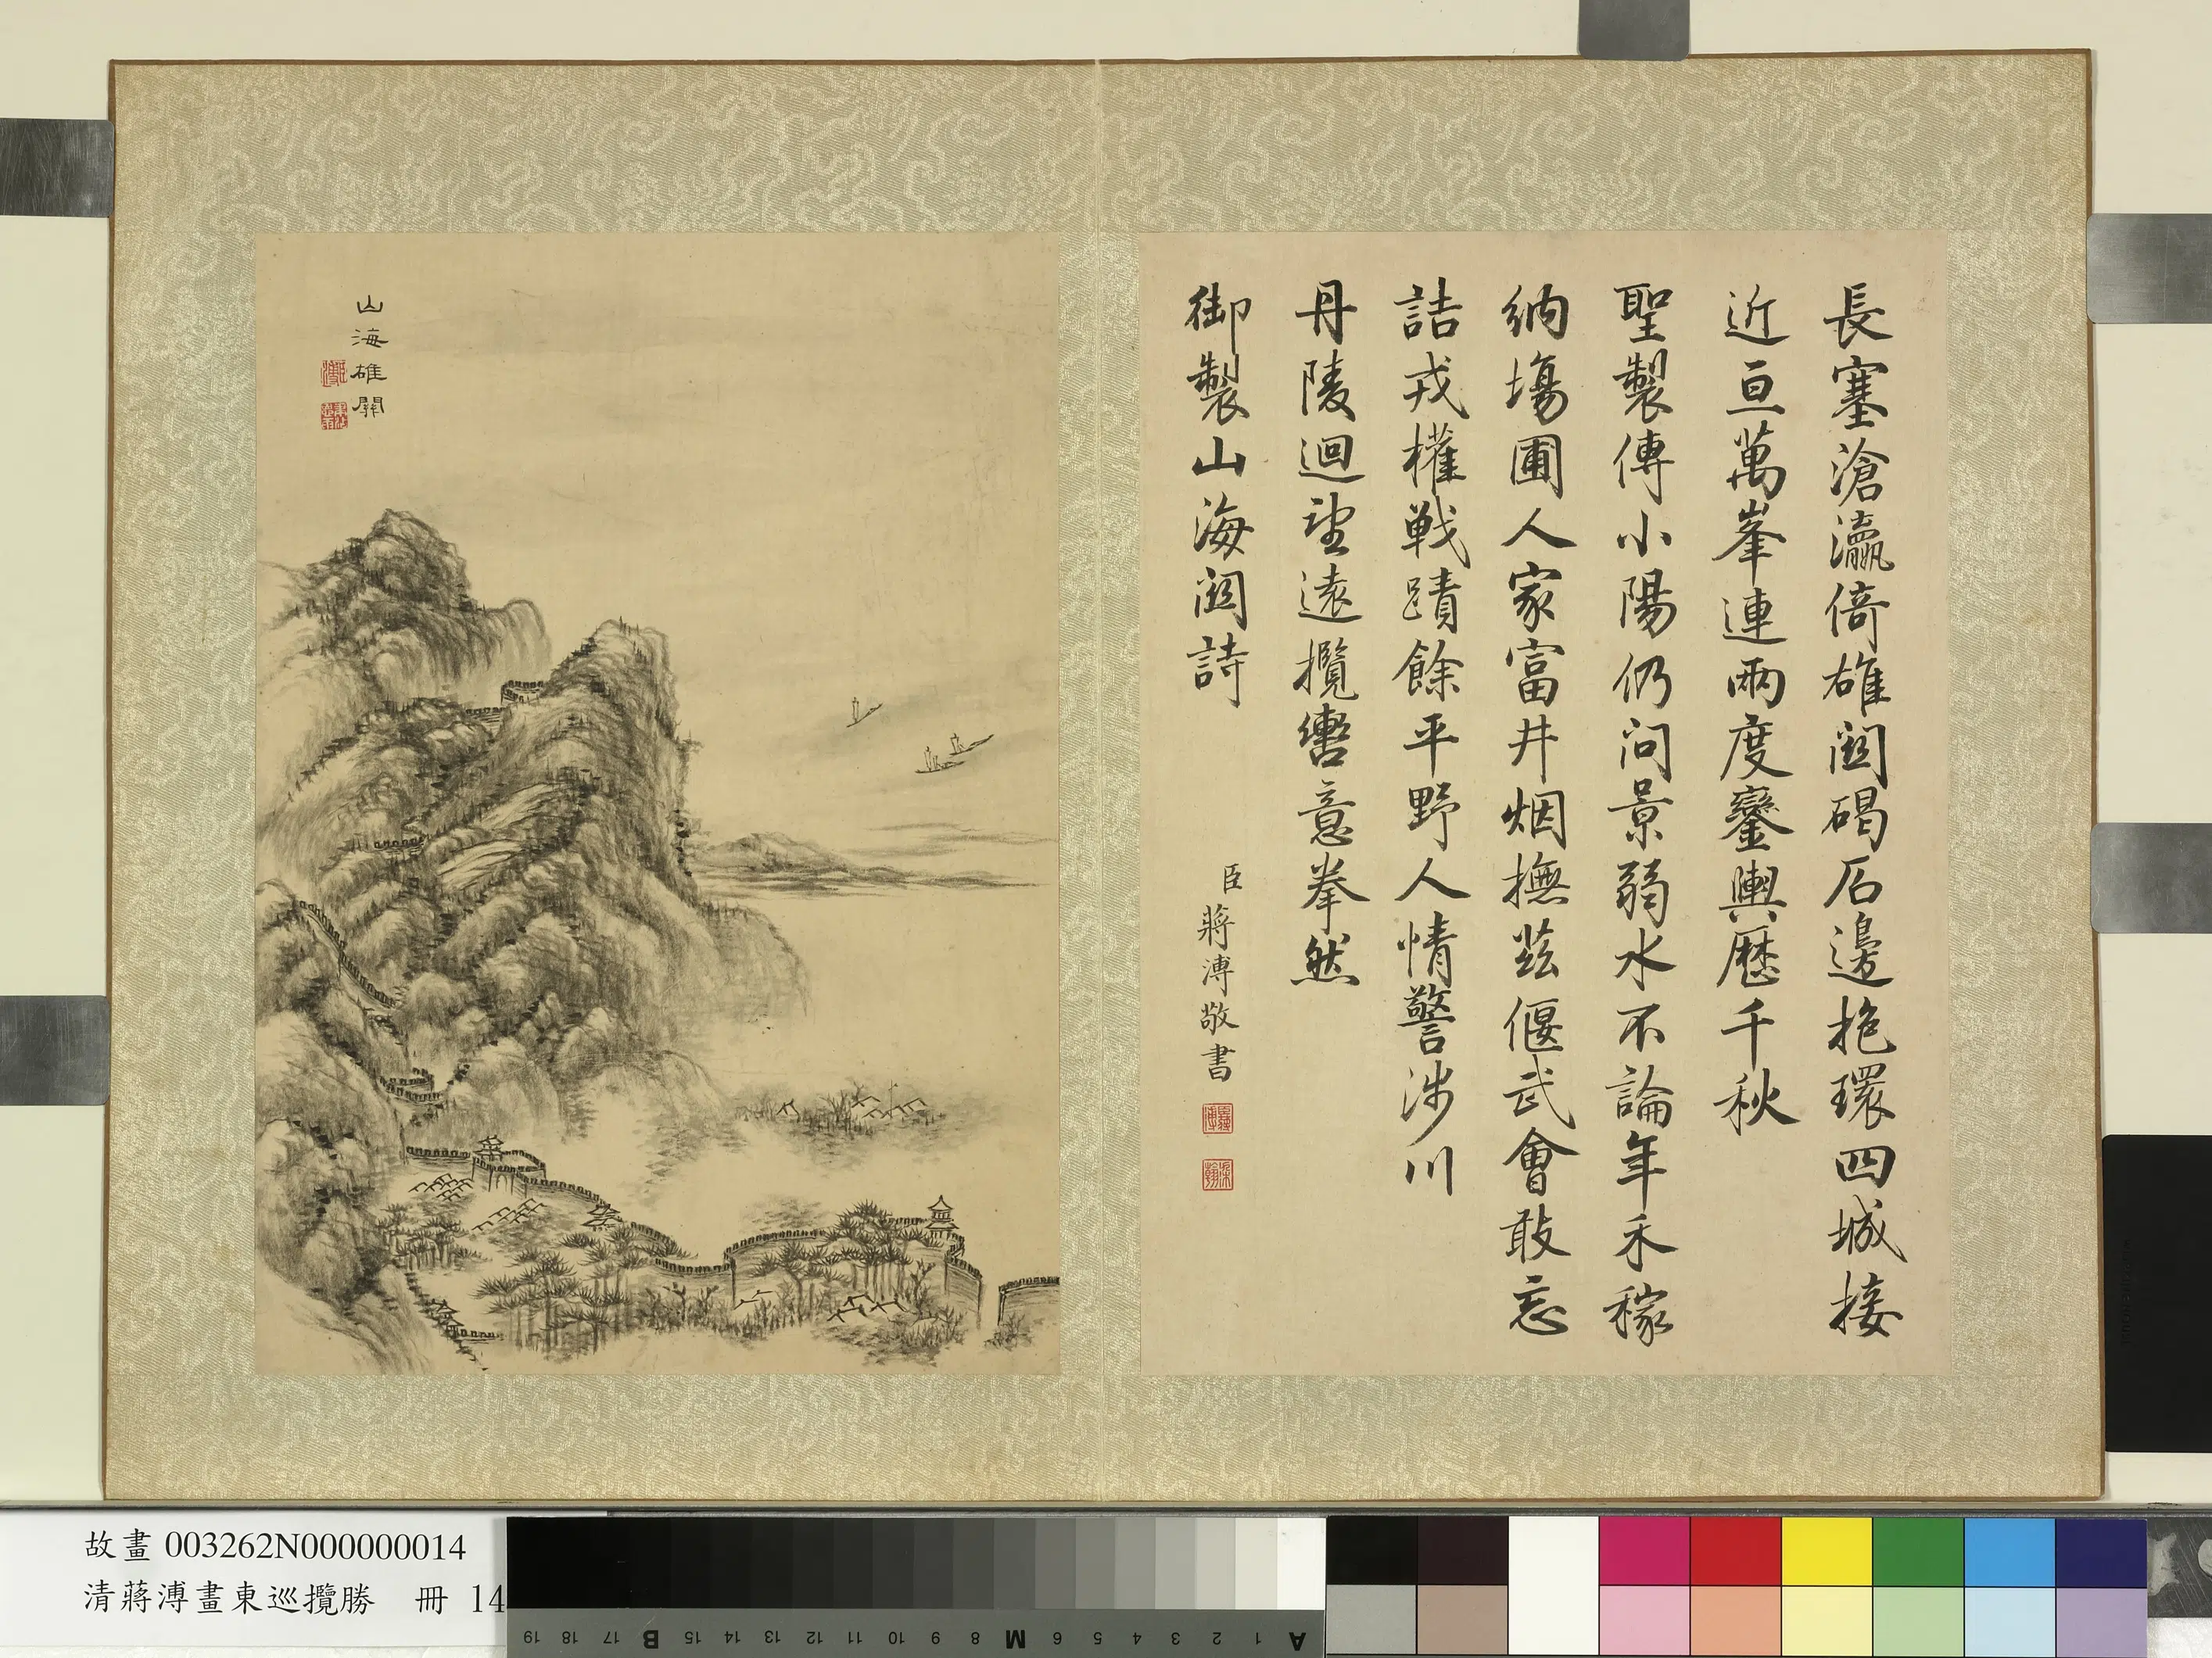 長塞滄瀛倚雄關碣石邊抱環四城接
近亘萬峯連兩度鑾輿歷千秋
聖製傳小陽仍問景弱水不論年禾稼
納場圃人家富井烟撫茲偃武會敢忘
詰戎權戰蹟餘平野人情警涉川
丹陵迴望遠攬轡意拳然
御製山海關詩
臣蔣溥敬書
山海雄關
故畫 003262N000000014
清蔣溥畫東巡攬勝 冊 14
19 18 17 B 15 14 13 12 11 10 9 8 M 6 5 4 3 2 1 A